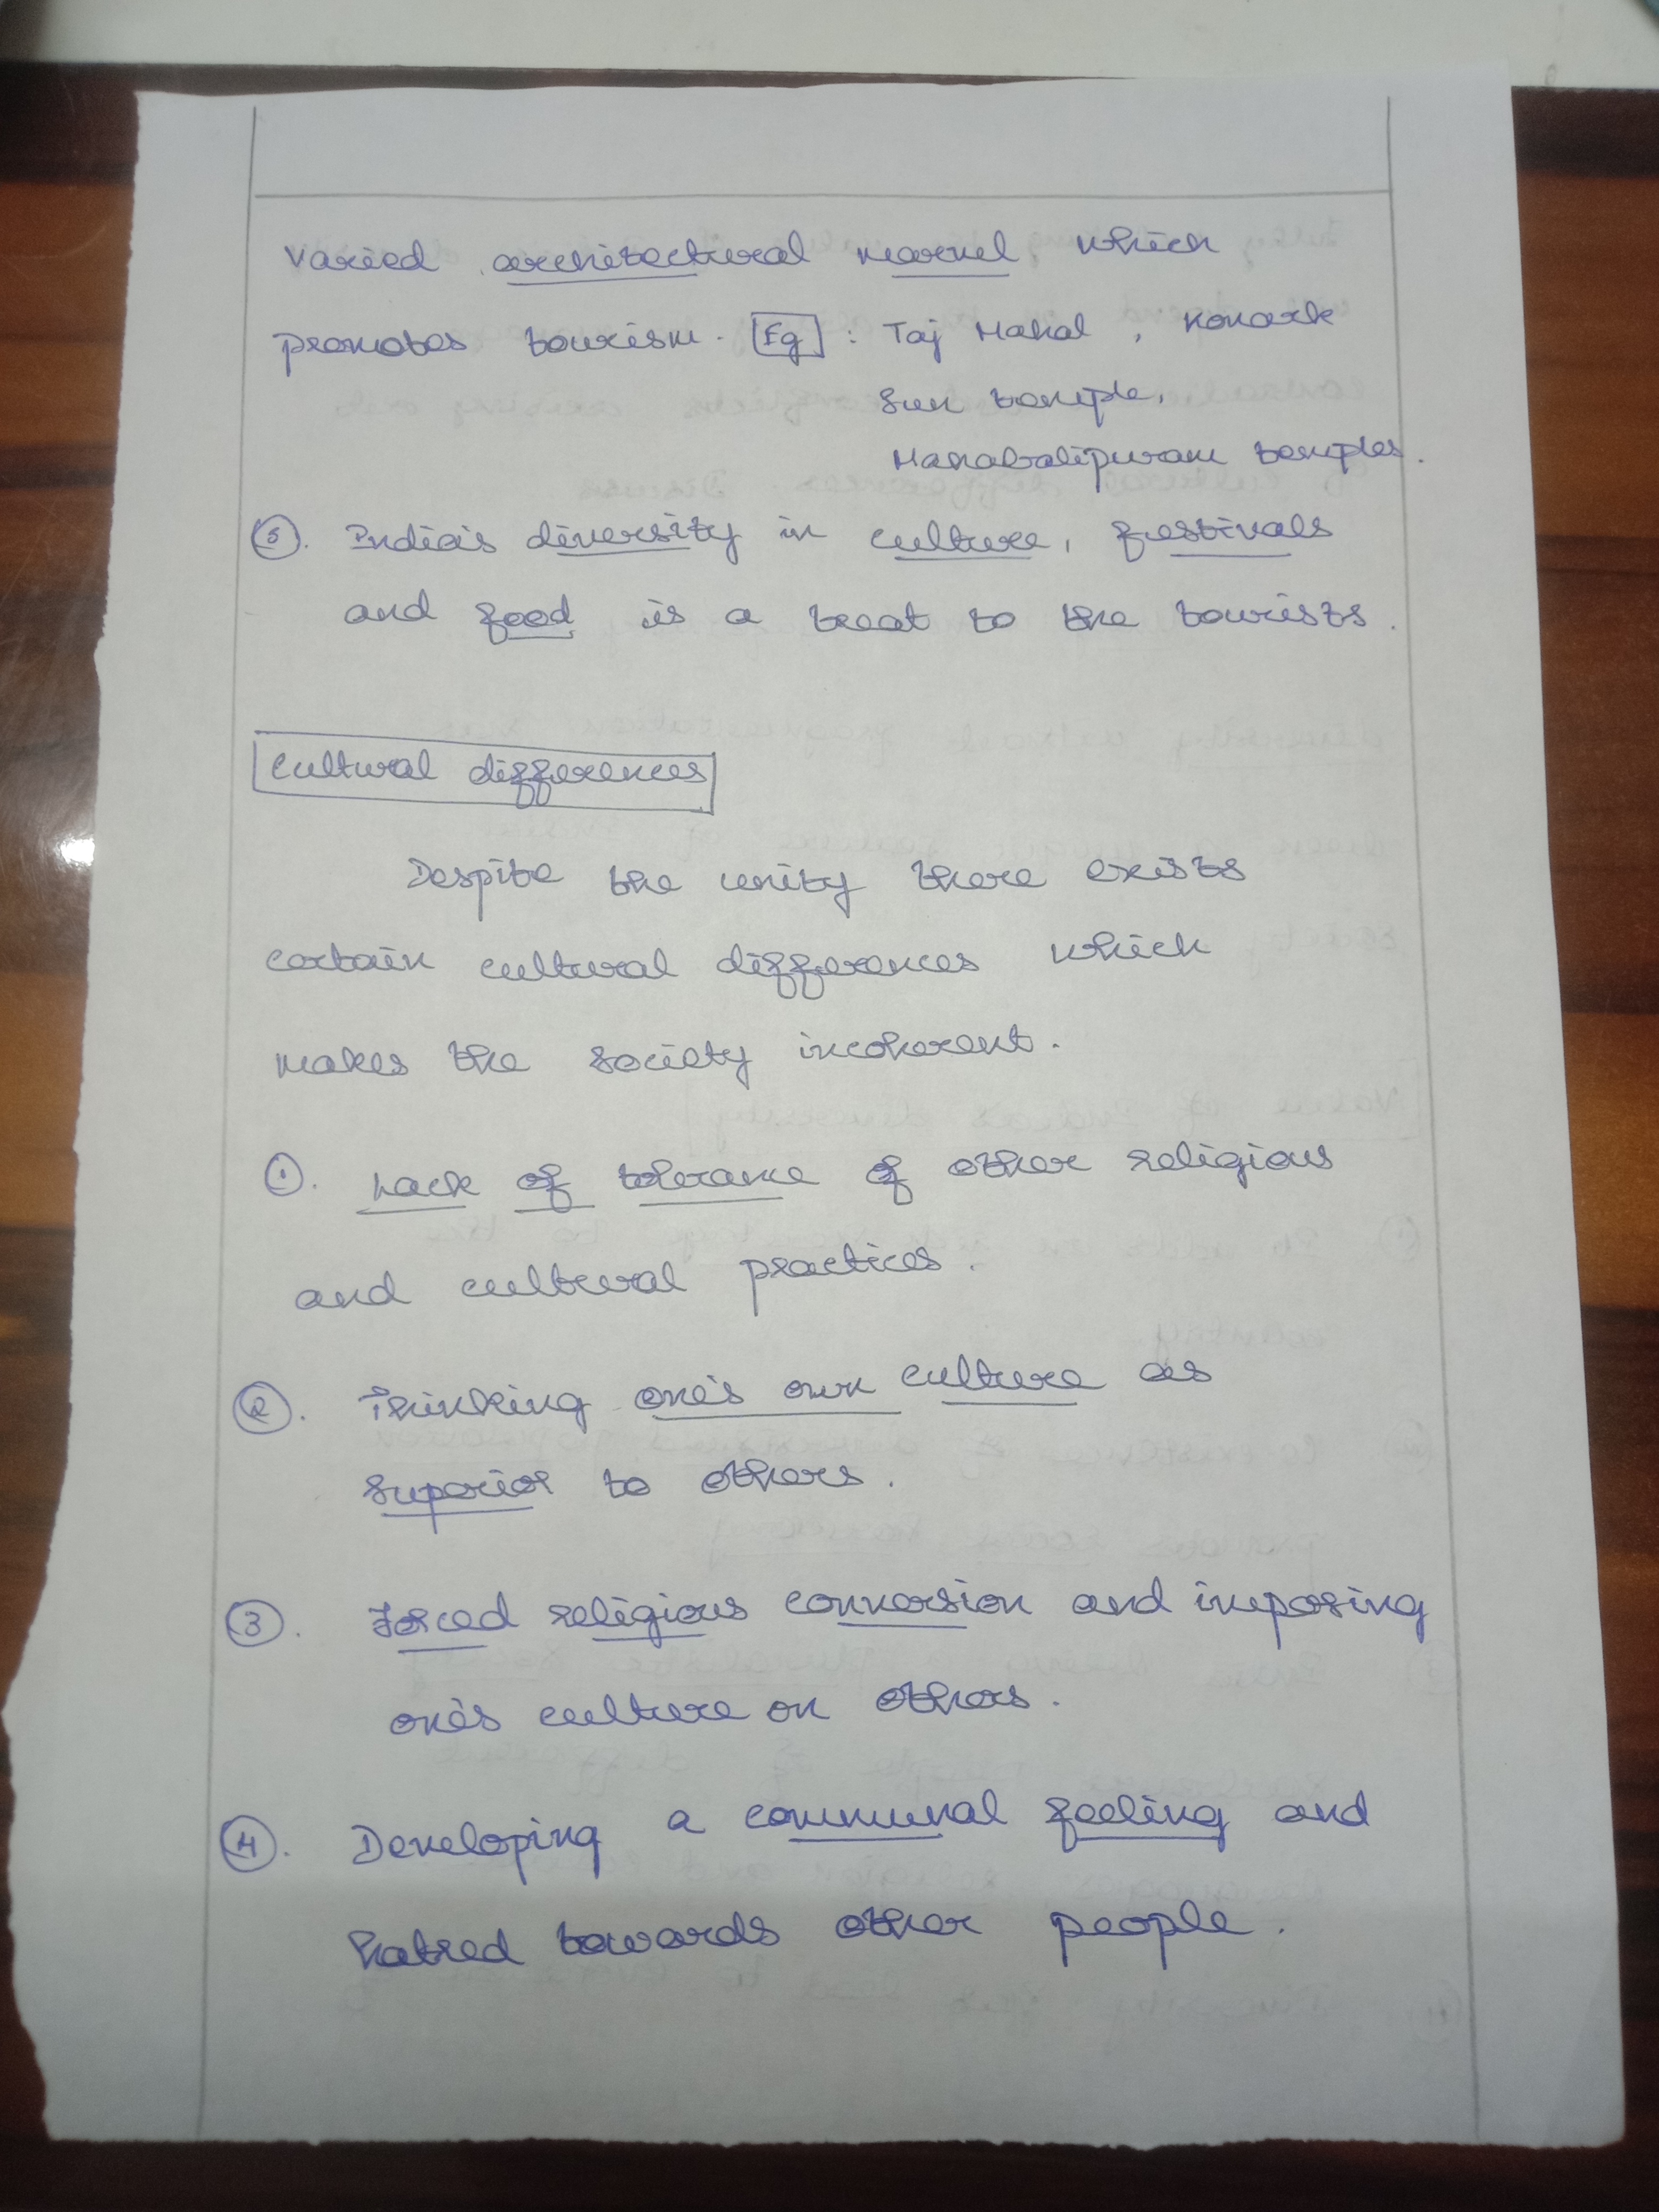 Varied architectural marvel which
promotes tourism. Eg : Taj Mahal , Konark
Sun temple,
Mahabalipuram temples.
5. India's diversity in culture, festivals
and food is a treat to the tourists.
Cultural differences
Despite the unity there exists
certain cultural differences which
makes the society incoherent.
1. Lack of tolerance of other religious
and cultural practices.
2. Thinking one's own culture as
superior to others.
3. Forced religious conversion and imposing
one's culture on others.
4. Developing a communal feeling and
hatred towards other people.